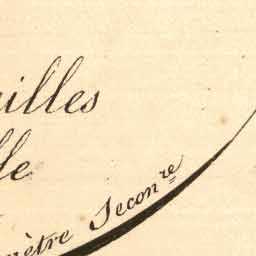 illes
lle
mètre Secon.re